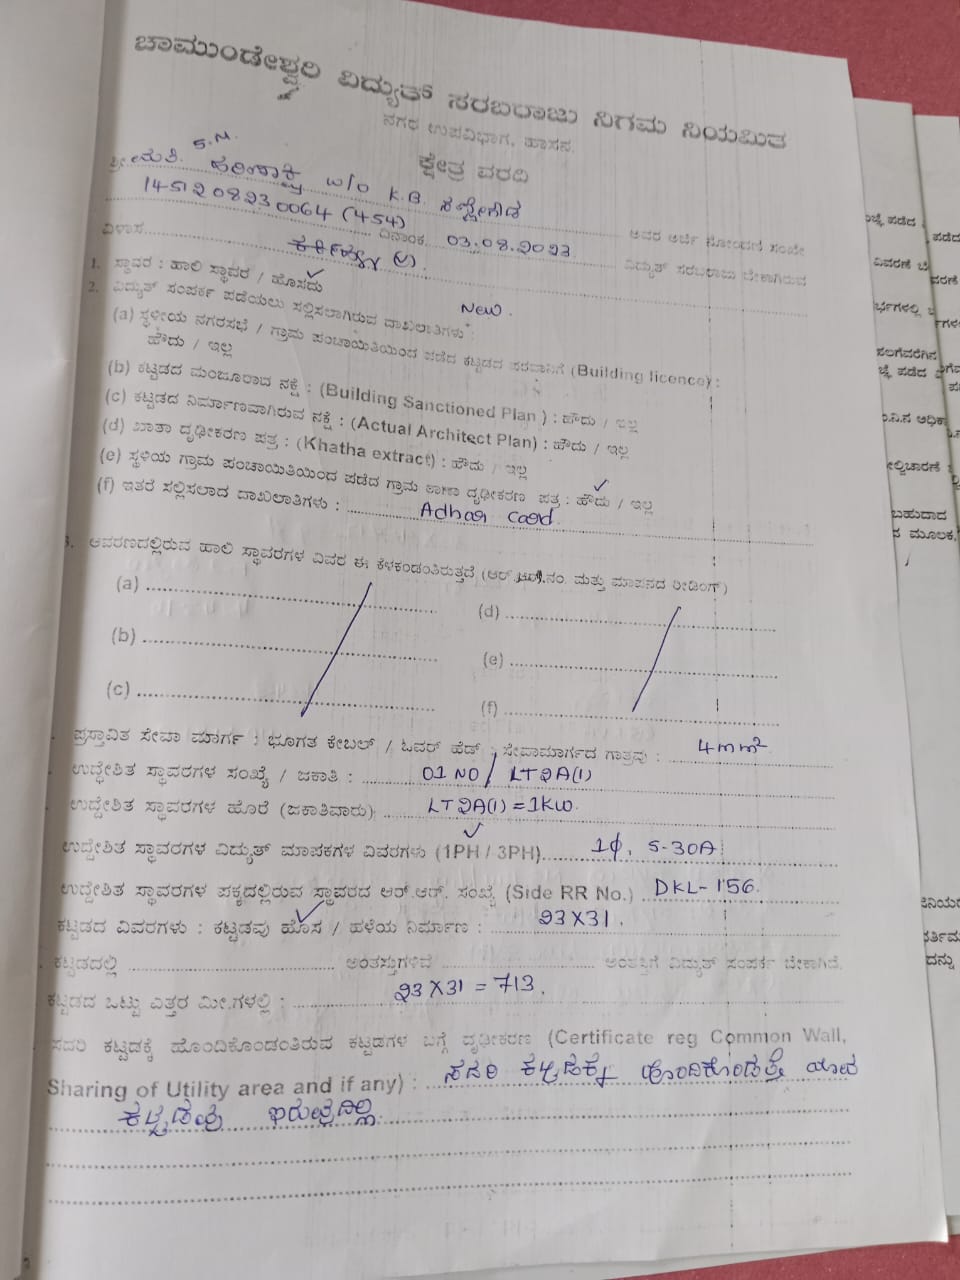 ಚಾಮುಂಡೇಶ್ವರಿ ವಿದ್ಯುತ್ ಸರಬರಾಜು ನಿಗಮ ನಿಯಮಿತ
ನಗರ ಉಪವಿಭಾಗ, ಹಾಸನ.
ಕ್ಷೇತ್ರ ವರದಿ
ಶ್ರೀಮತಿ. S.M. W/O K.B.
145120823 0064 (454) ದಿನಾಂಕ 03.08.2023 ಅವರ ಅರ್ಜಿ ನೋಂದಣಿ ಸಂಖ್ಯೆ
ವಿಳಾಸ ವಿದ್ಯುತ್ ಸರಬರಾಜು ಬೇಕಾಗಿರುವ
1. ಸ್ಥಾವರ : ಹಾಲಿ ಸ್ಥಾವರ / ಹೊಸದು
2. ವಿದ್ಯುತ್ ಸಂಪರ್ಕ ಪಡೆಯಲು ಸಲ್ಲಿಸಲಾಗಿರುವ ದಾಖಲಾತಿಗಳು : New.
(a) ಸ್ಥಳೀಯ ನಗರಸಭೆ / ಗ್ರಾಮ ಪಂಚಾಯಿತಿಯಿಂದ ಪಡೆದ ಕಟ್ಟಡದ ಪರವಾನಿಗೆ (Building licence) :
ಹೌದು / ಇಲ್ಲ
(b) ಕಟ್ಟಡದ ಮಂಜೂರಾದ ನಕ್ಷೆ : (Building Sanctioned Plan ) : ಹೌದು / ಇಲ್ಲ
(c) ಕಟ್ಟಡದ ನಿರ್ಮಾಣವಾಗಿರುವ ನಕ್ಷೆ : (Actual Architect Plan) : ಹೌದು / ಇಲ್ಲ
(d) ಖಾತಾ ದೃಢೀಕರಣ ಪತ್ರ : (Khatha extract) : ಹೌದು / ಇಲ್ಲ
(e) ಸ್ಥಳಿಯ ಗ್ರಾಮ ಪಂಚಾಯಿತಿಯಿಂದ ಪಡೆದ ಗ್ರಾಮ ಠಾಣಾ ದೃಢೀಕರಣ ಪತ್ರ : ಹೌದು / ಇಲ್ಲ
(f) ಇತರೆ ಸಲ್ಲಿಸಲಾದ ದಾಖಲಾತಿಗಳು : Adhar card
3. ಆವರಣದಲ್ಲಿರುವ ಹಾಲಿ ಸ್ಥಾವರಗಳ ವಿವರ ಈ ಕೆಳಕಂಡಂತಿರುತ್ತದೆ (ಆರ್.ಆರ್.ನಂ. ಮತ್ತು ಮಾಪನದ ರೀಡಿಂಗ್)
(a) (d)
(b) (e)
(c) (f)
ಪ್ರಸ್ತಾವಿತ ಸೇವಾ ಮಾರ್ಗ : ಭೂಗತ ಕೇಬಲ್ / ಓವರ್ ಹೆಡ್ : ಸೇವಾಮಾರ್ಗದ ಗಾತ್ರವು : 4mm²
ಉದ್ಧೇಶಿತ ಸ್ಥಾವರಗಳ ಸಂಖ್ಯೆ / ಜಕಾತಿ : 01 NO / LT2A(1)
ಉದ್ದೇಶಿತ ಸ್ಥಾವರಗಳ ಹೊರೆ (ಜಕಾತಿವಾರು) LT2A(1) = 1KW.
ಉದ್ದೇಶಿತ ಸ್ಥಾವರಗಳ ವಿದ್ಯುತ್ ಮಾಪಕಗಳ ವಿವರಗಳು (1PH / 3PH) 1ϕ, 5-30A
ಉದ್ದೇಶಿತ ಸ್ಥಾವರಗಳ ಪಕ್ಕದಲ್ಲಿರುವ ಸ್ಥಾವರದ ಆರ್.ಆರ್. ಸಂಖ್ಯೆ (Side RR No.) DKL-156.
ಕಟ್ಟಡದ ವಿವರಗಳು : ಕಟ್ಟಡವು ಹೊಸ / ಹಳೆಯ ನಿರ್ಮಾಣ : 23X31.
ಕಟ್ಟಡದಲ್ಲಿ ಅಂತಸ್ತುಗಳಿವೆ ಅಂತಸ್ತಿಗೆ ವಿದ್ಯುತ್ ಸಂಪರ್ಕ ಬೇಕಾಗಿದೆ.
ಕಟ್ಟಡದ ಒಟ್ಟು ಎತ್ತರ ಮೀ.ಗಳಲ್ಲಿ : 23X31 = 713.
ಸದರಿ ಕಟ್ಟಡಕ್ಕೆ ಹೊಂದಿಕೊಂಡಂತಿರುವ ಕಟ್ಟಡಗಳ ಬಗ್ಗೆ ದೃಢೀಕರಣ (Certificate reg Common Wall,
Sharing of Utility area and if any) : ಸದರಿ ಕಟ್ಟಡಕ್ಕೆ ಹೊಂದಿಕೊಂಡಂತೆ ಯಾವ
ಕಟ್ಟಡವು ಇರುವುದಿಲ್ಲ